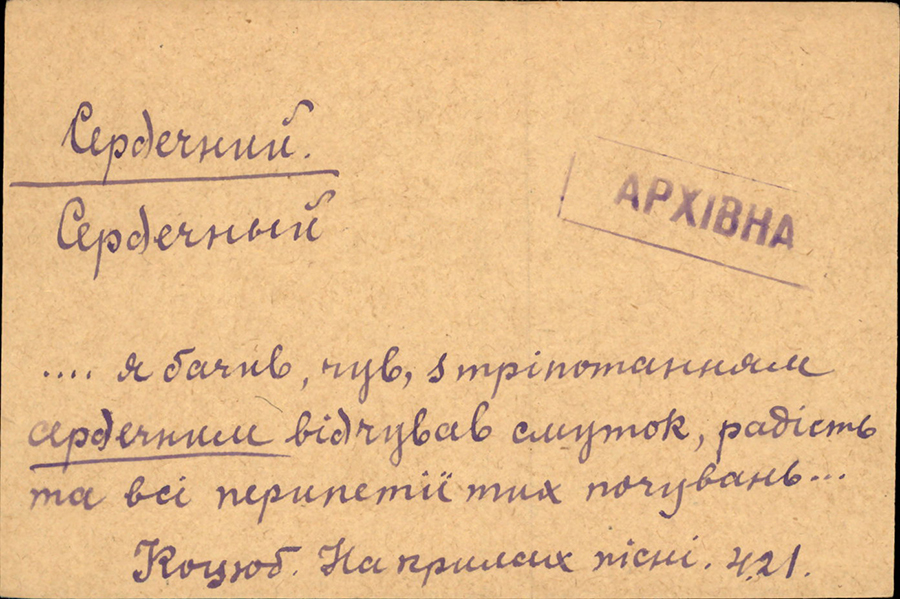 Сердечний.
АРХІВНА
Сердечный
.... я бачив, чув, з тріпотанням
сердечним відчував смуток, радість
та всі перипетії тих почувань...
Коцюб. На крилах пісні. 421.